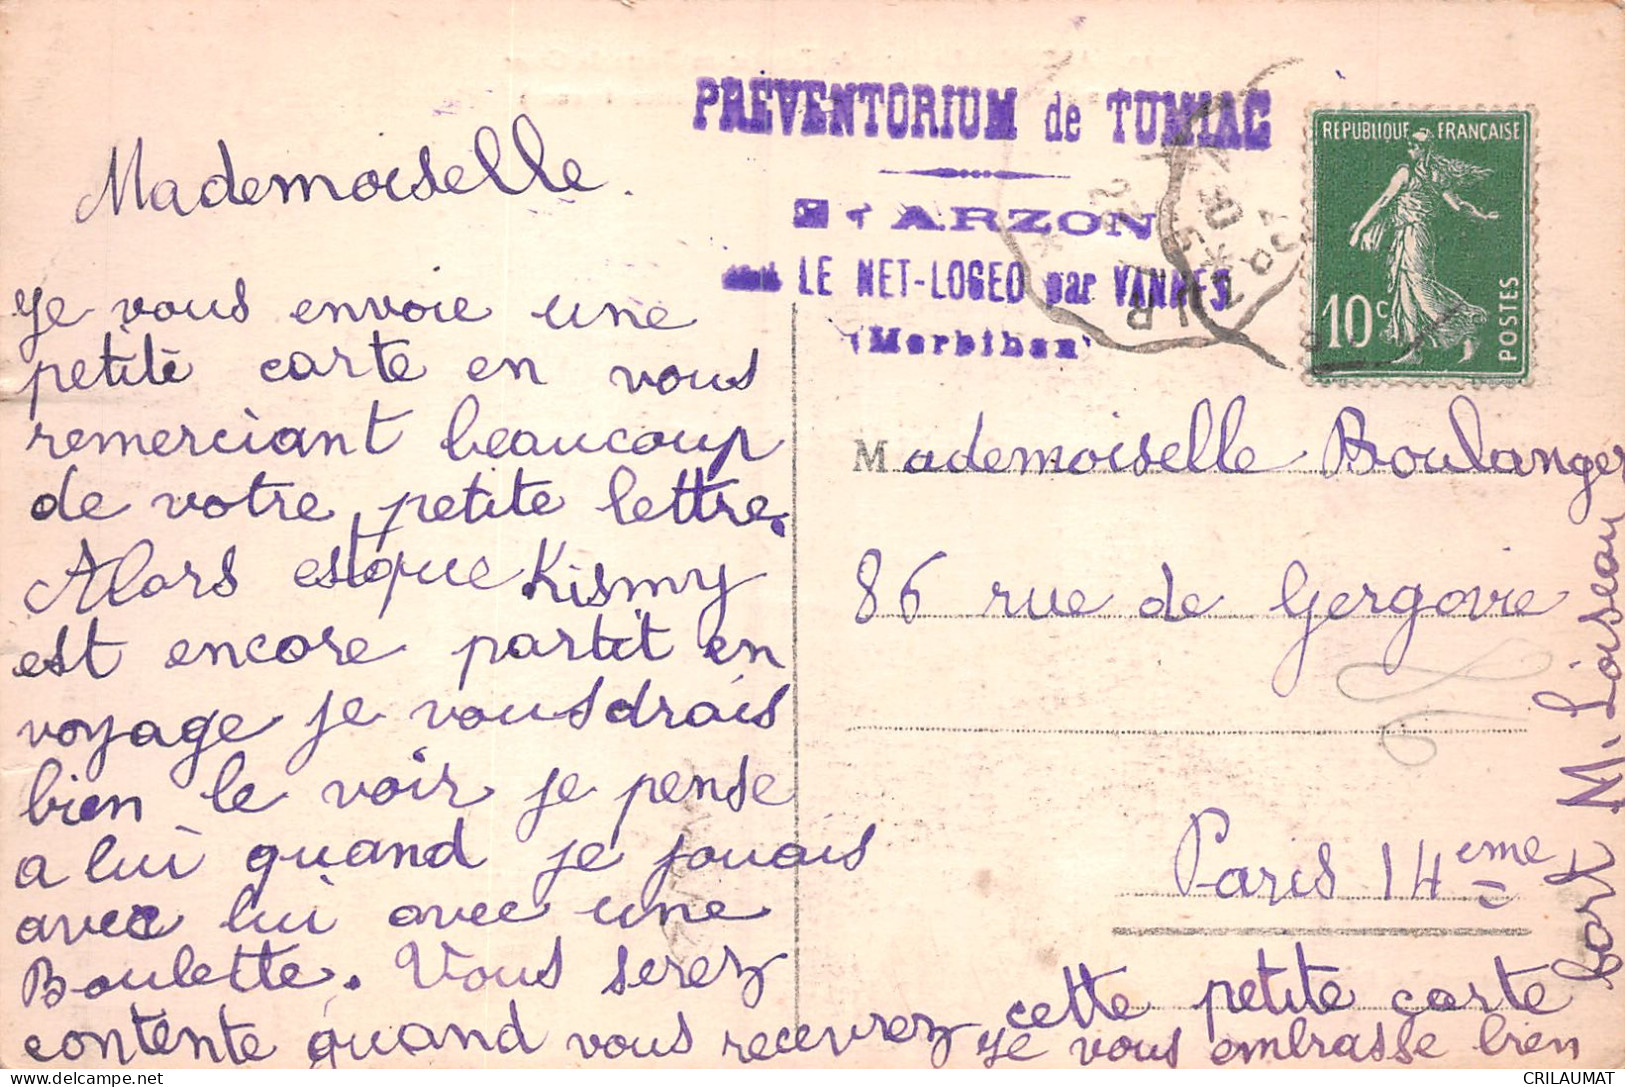 Mademoiselle.
Je vous envoie une
petite carte en vous
remerciant beaucoup
de votre petite lettre.
Alors estque Kismy
est encore partit en
voyage je vousdrais
bien le voir je pense
a lui quand je jouais
avec lui avec une
Boulette. Vous serez
contente quand vous recevrez cette petite carte
Je vous embrasse bien
fort M. Loiseau
PREVENTORIUM de TUMIAC
ARZON
LE NET-LOGEO par VANNES
(Morbihan)
REPUBLIQUE FRANÇAISE
10c
POSTES
Mademoiselle Boulanger
86 rue de Gergovie
Paris 14eme
CRILAUMAT